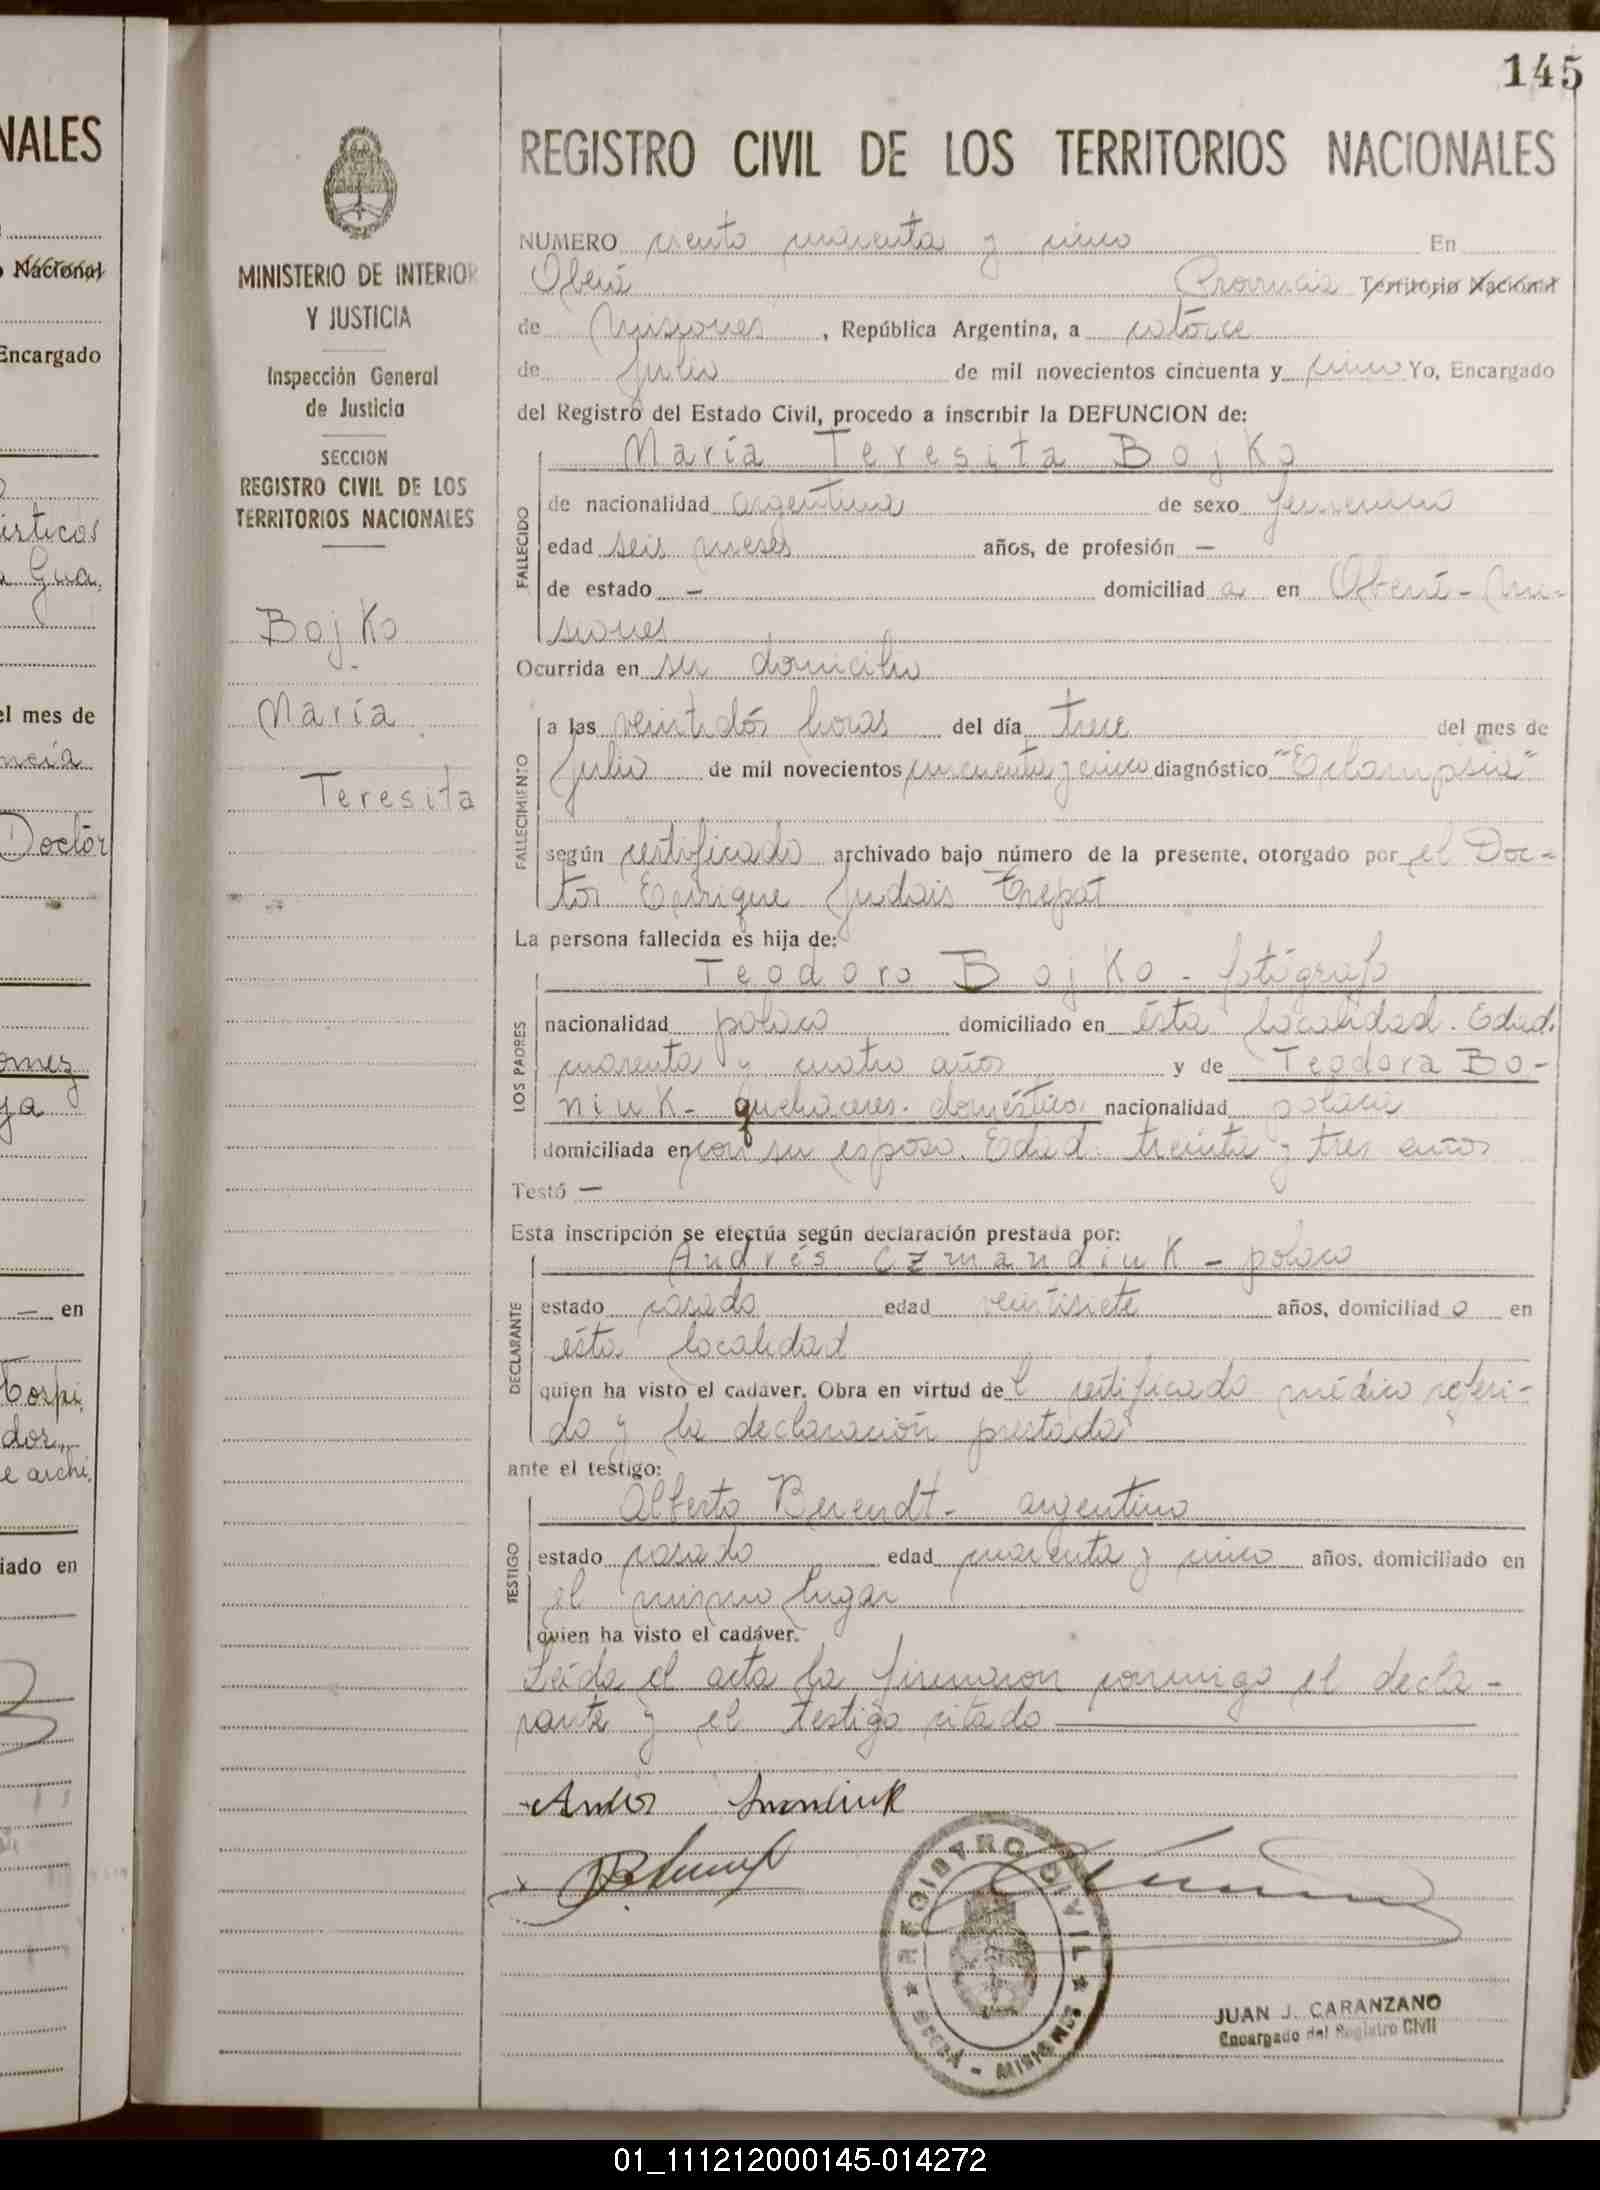 NALES
Nacional
Encargado
ísticas
a Gua,
el mes de
Doctor
omez
ya
en
Hospi,
dor,,
e archi,
iado en
MINISTERIO DE INTERIOR
Y JUSTICIA
Inspección General
de Justicia
SECCION
REGISTRO CIVIL DE LOS
TERRITORIOS NACIONALES
Bojko
María
Teresita
145
REGISTRO CIVIL DE LOS TERRITORIOS NACIONALES
NUMERO ciento cuarenta y cinco En
Oberá Provincia Territorio Nacional
de Misiones, República Argentina, a catorce
de Julio de mil novecientos cincuenta y cinco Yo, Encargado
del Registro del Estado Civil, procedo a inscribir la DEFUNCION de:
María Teresita Bojko
FALLECIDO
de nacionalidad argentina de sexo femenino
edad seis meses años, de profesión —
de estado — domiciliad a en Oberá - Mi-
siones
Ocurrida en su domicilio
FALLECIMIENTO
a las veintidós horas del día trece del mes de
Julio de mil novecientos cincuenta y cinco diagnóstico "Eclampsia"
según certificado archivado bajo número de la presente, otorgado por el Doc-
tor Enrique Judais Trepat
La persona fallecida es hija de:
Teodoro Bojko - fotógrafo
LOS PADRES
nacionalidad polaco domiciliado en ésta localidad. Edad.
cuarenta y cuatro años y de Teodora Bo-
niuk - quehaceres. domésticos nacionalidad polaca
domiciliada en con su esposo. Edad: treinta y tres años
Testó —
Esta inscripción se efectúa según declaración prestada por:
Andrés Czmandiuk - polaco
DECLARANTE
estado casado edad veintisiete años, domiciliad o en
ésta localidad
quien ha visto el cadáver. Obra en virtud del certificado médico referi-
do y la declaración prestada
ante el testigo:
Alberto Berendt - argentino
TESTIGO
estado casado edad cuarenta y cinco años, domiciliado en
el mismo lugar
quien ha visto el cadáver.
Leída el acta la firmaron conmigo el decla-
rante y el testigo citado
REGISTRO CIVIL
OBERÁ - MISIONES
JUAN J. CARANZANO
Encargado del Registro Civil
01_111212000145-014272